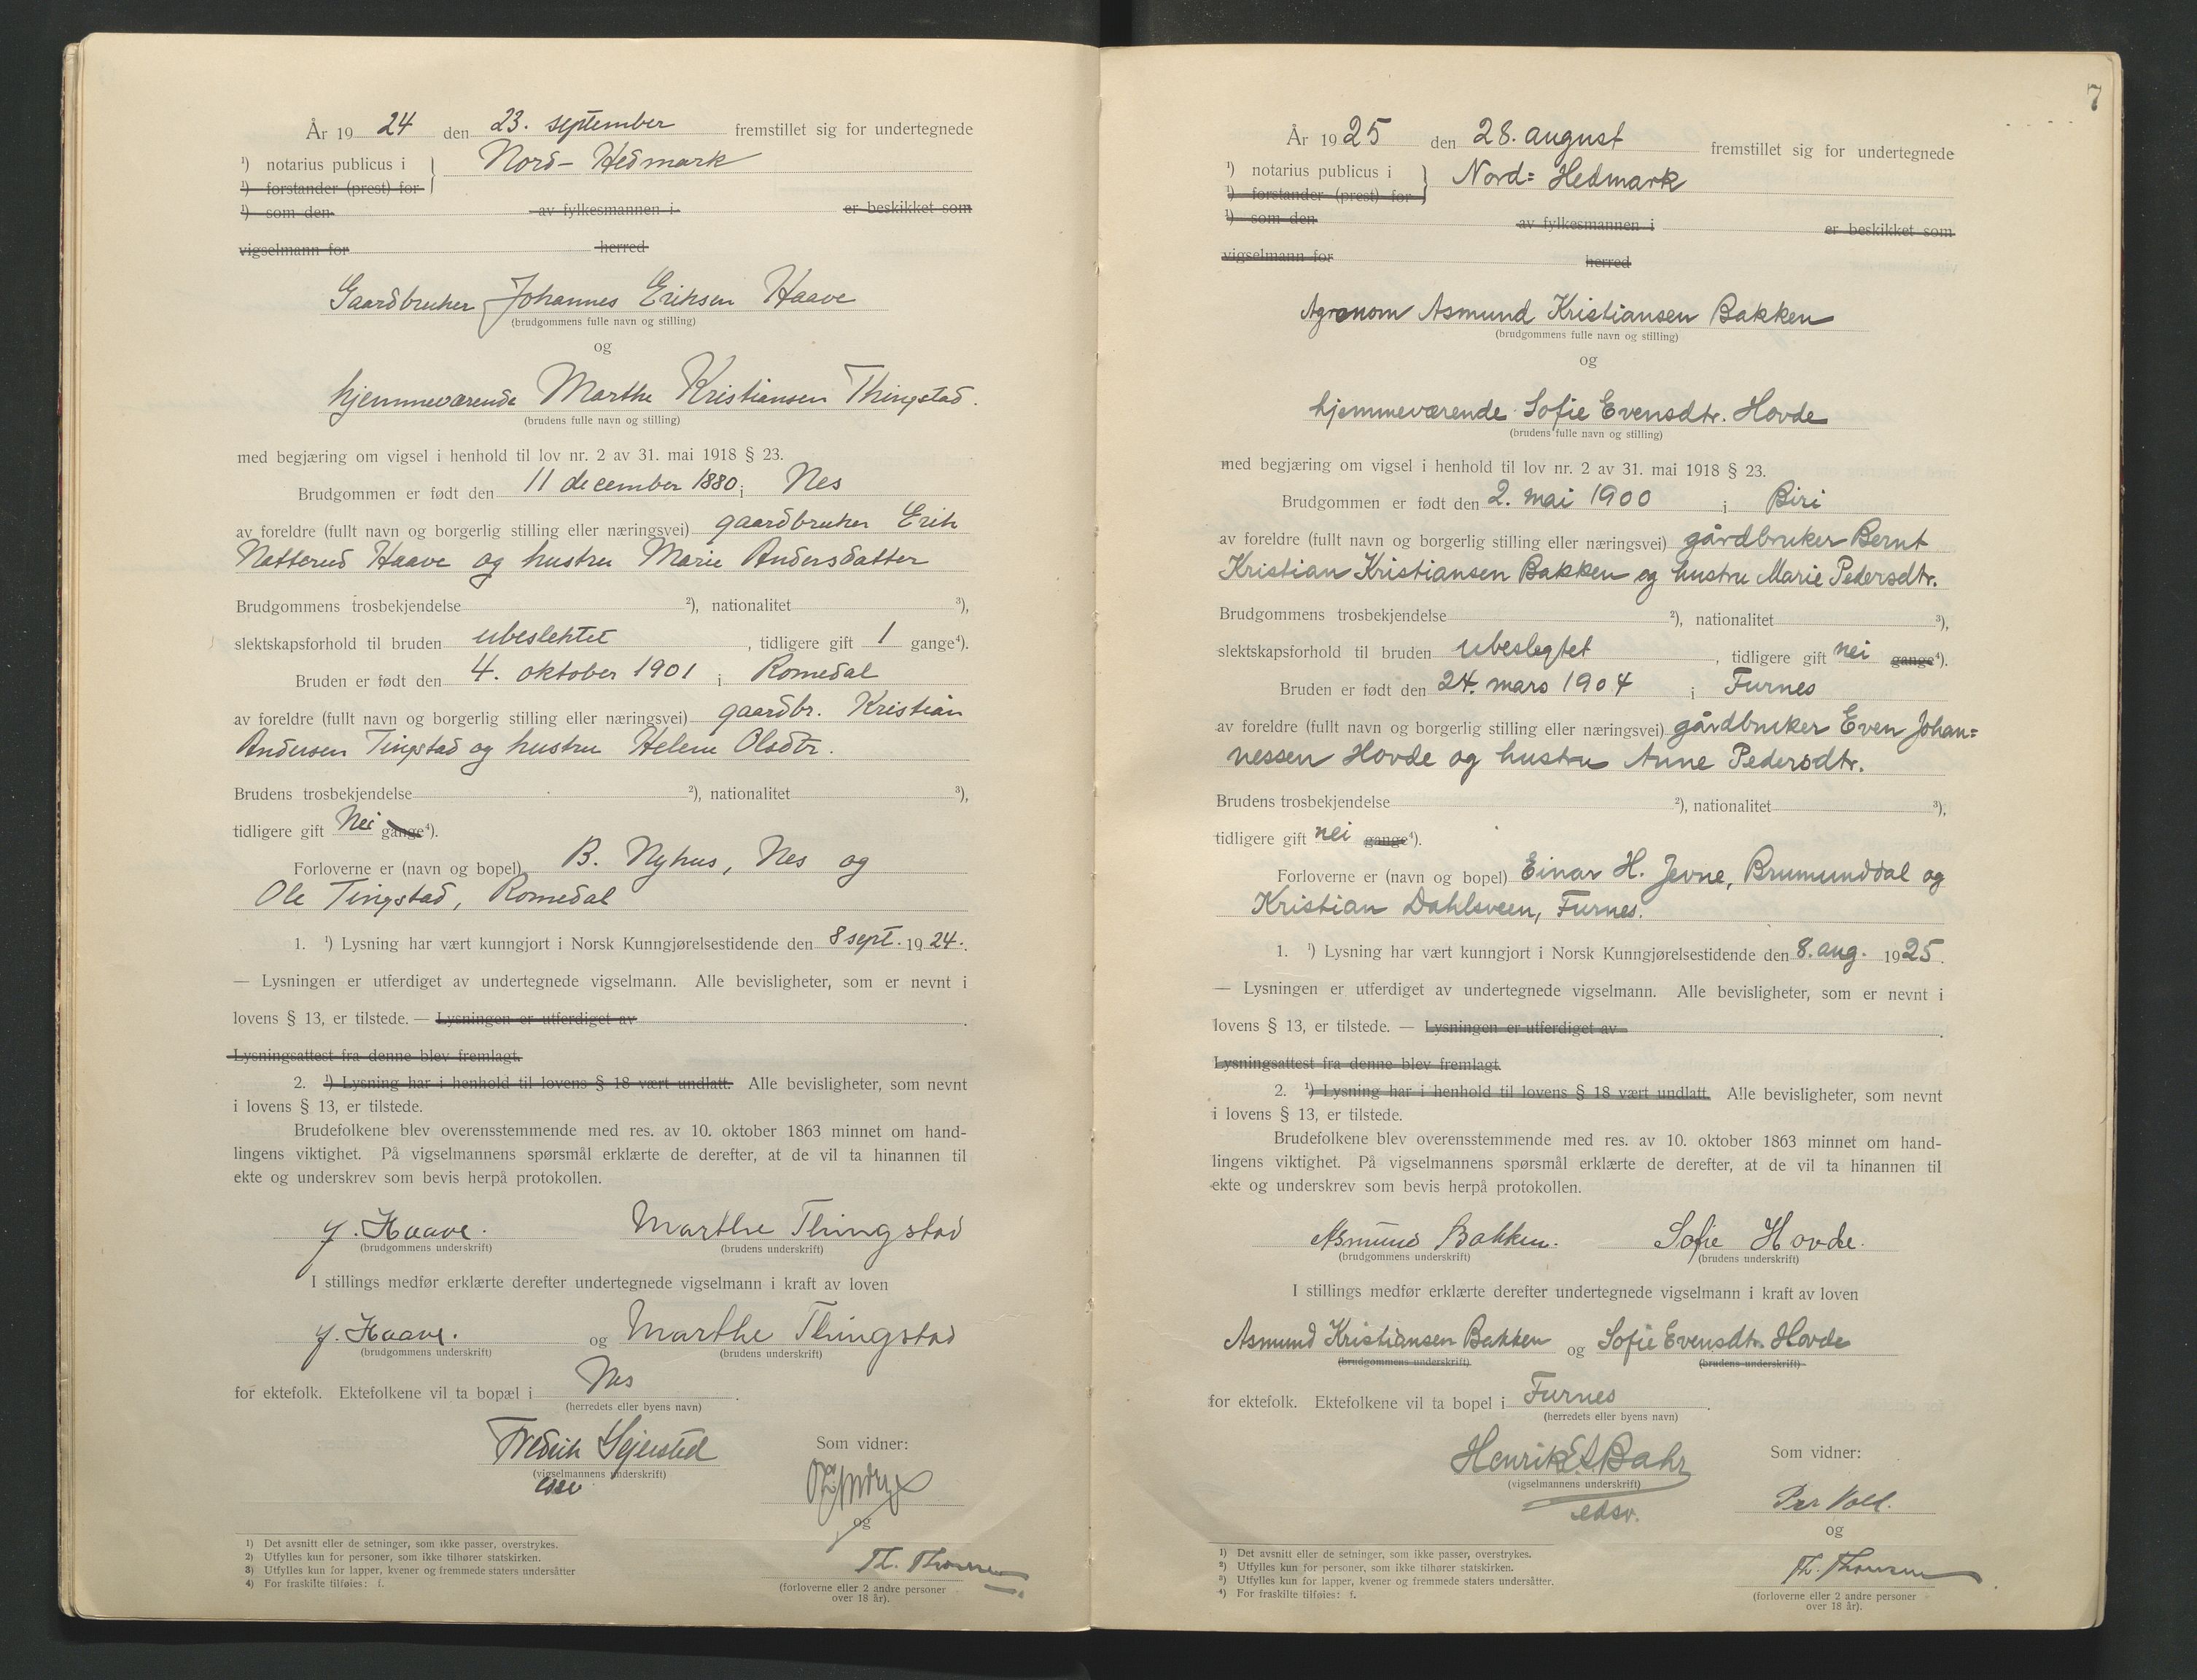 År 1924 den 23. september fremstillet sig for undertegnede
¹) notarius publicus i } Nord-Hedmark
¹) forstander (prest) for
¹) som den av fylkesmannen i er beskikket som
vigselmann for herred
Gaardbruker Johannes Eriksen Haave
(brudgommens fulle navn og stilling)
og
hjemmeværende Marthe Kristiansen Thingstad.
(brudens fulle navn og stilling)
med begjæring om vigsel i henhold til lov nr. 2 av 31. mai 1918 § 23.
Brudgommen er født den 11 december 1880 i Nes
av foreldre (fullt navn og borgerlig stilling eller næringsvei) gaardbruker Erik
Netterud Haave og hustru Marie Andersdatter
Brudgommens trosbekjendelse ²), nationalitet ³),
slektskapsforhold til bruden ubeslektet, tidligere gift 1 gange⁴).
Bruden er født den 4. oktober 1901 i Romedal
av foreldre (fullt navn og borgerlig stilling eller næringsvei) gaardbr. Kristian
Andersen Tingstad og hustru Helene Olsdtr.
Brudens trosbekjendelse ²), nationalitet ³),
tidligere gift Nei gange⁴).
Forloverne er (navn og bopel) B. Nyhus, Nes og
Ole Tingstad, Romedal
1. ¹) Lysning har vært kunngjort i Norsk Kunngjørelsestidende den 8 sept. 1924.
— Lysningen er utferdiget av undertegnede vigselmann. Alle bevisligheter, som er nevnt i
lovens § 13, er tilstede. — Lysningen er utferdiget av .
Lysningsattest fra denne blev fremlagt.
2. ¹) Lysning har i henhold til lovens § 18 vært undlatt. Alle bevisligheter, som nevnt
i lovens § 13, er tilstede.
Brudefolkene blev overensstemmende med res. av 10. oktober 1863 minnet om hand-
lingens viktighet. På vigselmannens spørsmål erklærte de derefter, at de vil ta hinannen til
ekte og underskrev som bevis herpå protokollen.
J. Haave. Marthe Thingstad
(brudgommens underskrift) (brudens underskrift)
I stillings medfør erklærte derefter undertegnede vigselmann i kraft av loven
J. Haave. og Marthe Thingstad
(brudgommens underskrift) (brudens underskrift)
for ektefolk. Ektefolkene vil ta bopæl i Nes .
(herredets eller byens navn)
Fredrik Gjersted
(vigselmannens underskrift)
Som vidner:
og
Th. Thomsen
(forloverne eller 2 andre personer
over 18 år).
1) Det avsnitt eller de setninger, som ikke passer, overstrykes.
2) Utfylles kun for personer, som ikke tilhører statskirken.
3) Utfylles kun for lapper, kvener og fremmede staters undersåtter
4) For fraskilte tilføies: f.
7
År 1925 den 28. august fremstillet sig for undertegnede
¹) notarius publicus i } Nord= Hedmark
¹) forstander (prest) for
¹) som den av fylkesmannen i er beskikket som
vigselmann for herred
Agronom Asmund Kristiansen Bakken
(brudgommens fulle navn og stilling)
og
hjemmeværende Sofie Evensdtr. Hovde
(brudens fulle navn og stilling)
med begjæring om vigsel i henhold til lov nr. 2 av 31. mai 1918 § 23.
Brudgommen er født den 2. mai 1900 i Biri
av foreldre (fullt navn og borgerlig stilling eller næringsvei) gårdbruker Bernt
Kristian Kristiansen Bakken og hustru Marie Pedersdtr.
Brudgommens trosbekjendelse ²), nationalitet ³),
slektskapsforhold til bruden ubeslegtet, tidligere gift nei gange⁴).
Bruden er født den 24. mars 1904 i Furnes
av foreldre (fullt navn og borgerlig stilling eller næringsvei) gårdbruker Even Johan=
nessen Hovde og hustru Anne Pedersdtr.
Brudens trosbekjendelse ²), nationalitet ³),
tidligere gift nei gange⁴).
Forloverne er (navn og bopel) Einar H. Jevne, Brumunddal og
Kristian Dahlsveen, Furnes.
1. ¹) Lysning har vært kunngjort i Norsk Kunngjørelsestidende den 8. aug. 1925.
— Lysningen er utferdiget av undertegnede vigselmann. Alle bevisligheter, som er nevnt i
lovens § 13, er tilstede. — Lysningen er utferdiget av .
Lysningsattest fra denne blev fremlagt.
2. ¹) Lysning har i henhold til lovens § 18 vært undlatt. Alle bevisligheter, som nevnt
i lovens § 13, er tilstede.
Brudefolkene blev overensstemmende med res. av 10. oktober 1863 minnet om hand-
lingens viktighet. På vigselmannens spørsmål erklærte de derefter, at de vil ta hinannen til
ekte og underskrev som bevis herpå protokollen.
Asmund Bakken. Sofie Hovde.
(brudgommens underskrift) (brudens underskrift)
I stillings medfør erklærte derefter undertegnede vigselmann i kraft av loven
Asmund Kristiansen Bakken og Sofie Evensdtr. Hovde
(brudgommens underskrift) (brudens underskrift)
for ektefolk. Ektefolkene vil ta bopel i Furnes .
(herredets eller byens navn)
Henrik E. S. Bahr
(vigselmannens underskrift)
edsv.
Som vidner:
Per Voll.
og
Th. Thomsen
(forloverne eller 2 andre personer
over 18 år).
¹) Det avsnitt eller de setninger, som ikke passer, overstrykes.
²) Utfylles kun for personer, som ikke tilhører statskirken.
³) Utfylles kun for lapper, kvener og fremmede staters undersåtter.
⁴) For fraskilte tilføies: f.